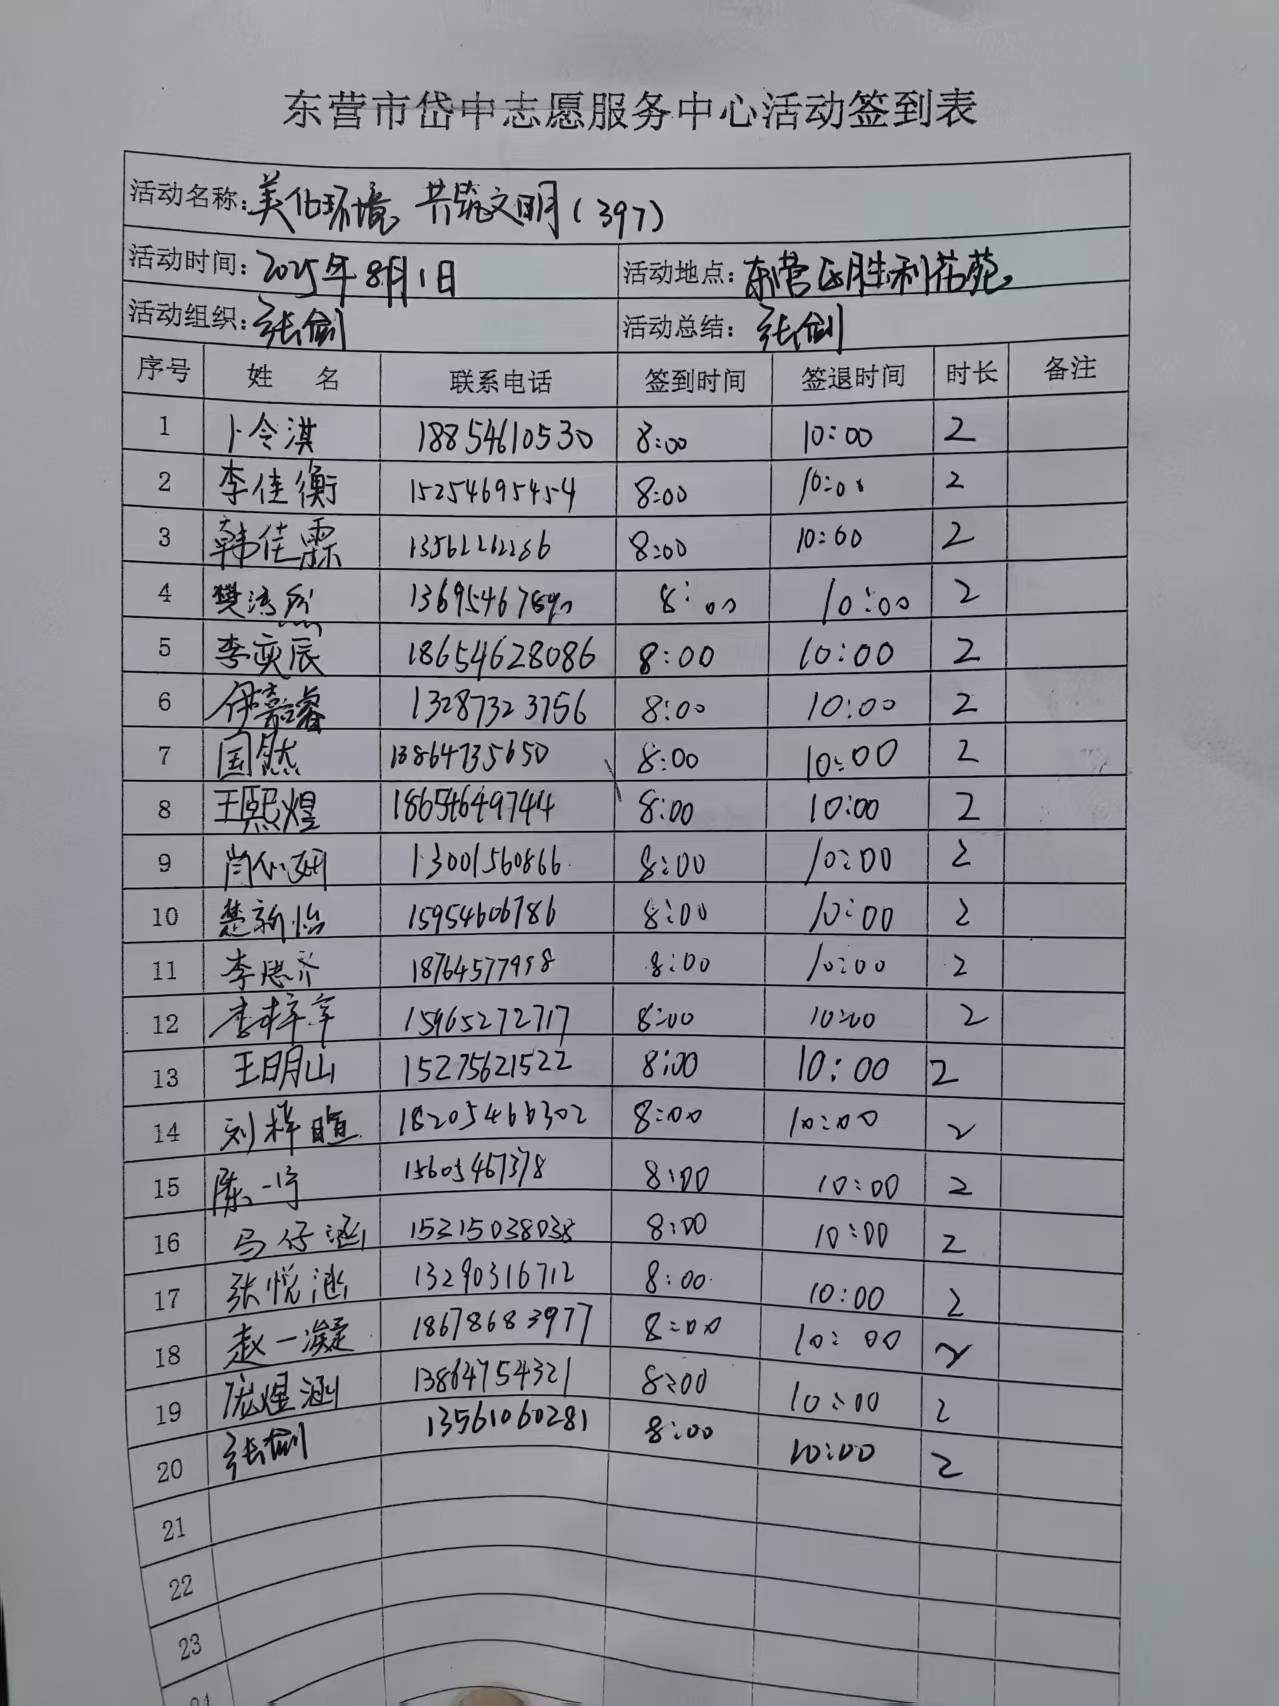 东营市岱中志愿服务中心活动签到表
活动名称：美化环境 共筑文明（397）
活动时间：2025年8月1日 活动地点：东营区胜利花苑。
活动组织：张剑 活动总结：张剑
序号 姓 名 联系电话 签到时间 签退时间 时长 备注
1 卜令淇 18854610530 8:00 10:00 2
2 李佳衡 15254695454 8:00 10:00 2
3 韩佳霖 8:00 10:00 2
4 樊 8:00 10:00 2
5 李奕辰 18654628086 8:00 10:00 2
6 伊嘉睿 13287323756 8:00 10:00 2
7 国然 13864735650 8:00 10:00 2
8 王熙煌 18654649744 8:00 10:00 2
9 13001560866 8:00 10:00 2
10 楚新怡 15954606786 8:00 10:00 2
11 李思齐 18764577998 8:00 10:00 2
12 李梓辛 15965272717 8:00 10:00 2
13 王明山 15275621522 8:00 10:00 2
14 刘梓暄 18205466302 8:00 10:00 2
15 陈一宁 15605467378 8:00 10:00 2
16 马仔涵 15215038038 8:00 10:00 2
17 张悦涵 13290316712 8:00 10:00 2
18 赵一凝 18678683977 8:00 10:00 2
19 庞煜涵 13864754321 8:00 10:00 2
20 张剑 13561060281 8:00 10:00 2
21
22
23